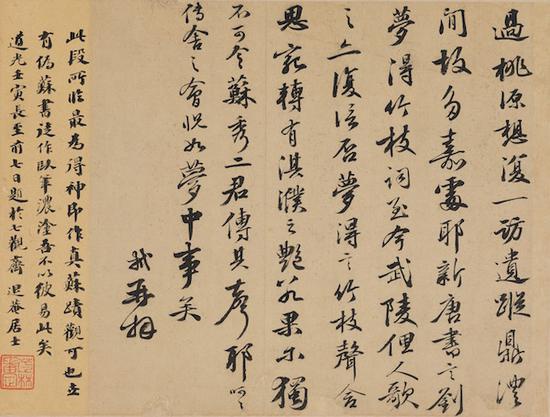 過桃源想復一訪遺蹤鼎澧
間故多嘉處耶新唐書言劉
夢得竹枝詞至今武陵俚人歌
之復信否夢得之竹枝聲含
思宛轉有淇濮之艷若果尔獨
不可令蘇秀二君傳其耶呵呵
傳舍之會怳如夢中事矣
軾再拜
此段所臨最為得神即作真蘇蹟觀可也世
有偽蘇書徒作臥筆濃塗吾不以彼易此矣
道光壬寅長至前七日題於七觀齋 退菴居士